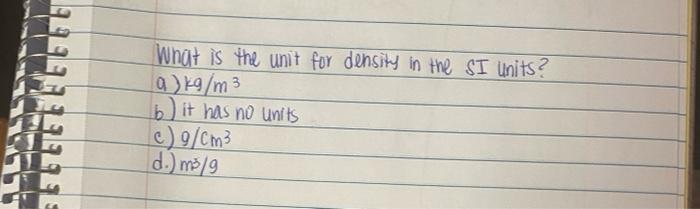 What is the unit for density in the SI units?
a) kg/m3
b) it has no units
c) g/cm3
d.) m3/g